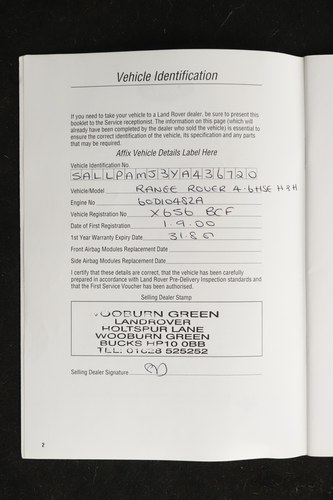 Vehicle Identification
If you need to take your vehicle to a Land Rover dealer, be sure to present this
booklet to the Service receptionist. The information on this page (which will
already have been completed by the dealer who sold the vehicle) is essential to
ensure the correct identification of the vehicle, its specification and any parts
that may be required.
Affix Vehicle Details Label Here
Vehicle Identification No.
SALLPAMJ3YA436720
Vehicle/Model RANGE ROVER 4.6HSE
Engine No 60D10482A
Vehicle Registration No X656 BCF
Date of First Registration 1.9.00
1st Year Warranty Expiry Date 31.8.
Front Airbag Modules Replacement Date
Side Airbag Modules Replacement Date
I certify that these details are correct, that the vehicle has been carefully
prepared in accordance with Land Rover Pre-Delivery Inspection standards and
that the First Service Voucher has been authorised.
Selling Dealer Stamp
WOOBURN GREEN
LANDROVER
HOLTSPUR LANE
WOOBURN GREEN
BUCKS HP10 0BB
TEL: 01628 525252
Selling Dealer Signature
2